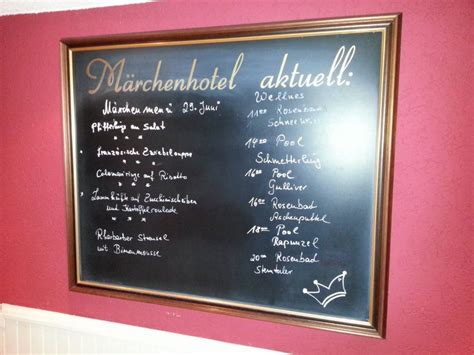 Märchenhotel aktuell:
Märchenmenü 29. Juni
Pfifferlinge an Salat
* * *
Französische Zwiebelsuppe
* * *
Calamariringe auf Risotto
* * *
Lammhüfte auf Zucchinischeiben
und Kartoffelroulade
* * *
Rhabarber Streusel
mit Birnenmousse
Wellnes
11:00 Rosenbad
Schneeweiss
14:00 Pool
Schmetterling
16:00 Pool
Gulliver
16:00 Rosenbad
Aschenputtel
18:00 Pool
Rapunzel
20:00 Rosenbad
Sterntaler